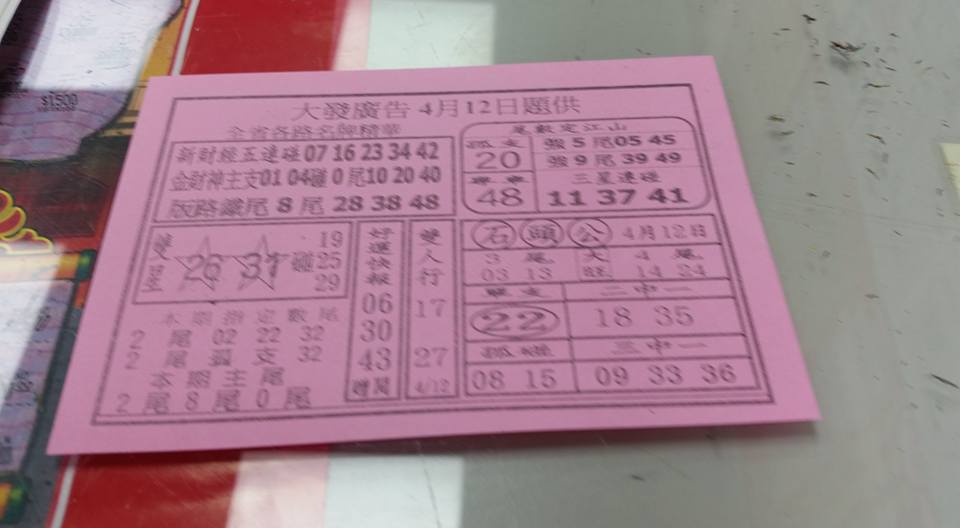 $1500
大發廣告 4月12日題供
全省各路名牌精華
新財經五連碰 07 16 23 34 42
金財神主支01 04碰 0 尾10 20 40
版路鐵尾 8 尾 28 38 48
尾數定江山
孤支
20
專車
48
強 5 尾05 45
強 9 尾 39 49
三星連碰
11 37 41
雙星
26 37 碰
19
25
29
本期指定數尾
2 尾 02 22 32
2 尾 孤 支 32
本期主尾
2 尾 8 尾 0 尾
好運快報
06
30
43
贈閱
雙人行
17
27
4/12
石頭公 4月12日
3 尾
03 13
大旺
4 尾
14 24
單支
22
二中一
18 35
孤碰
08 15
三中一
09 33 36